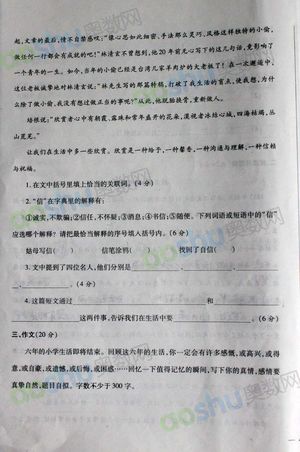 起,文章的最后,情不自禁感叹:"像心思如此细密、手法那么灵巧、风格这样独特的小偷,
做任何一行都会有成就的吧!"林清玄不曾想到,他20年前无心写下的这几句话,竟影响了
一个青年的一生。如今,当年的小偷已经是台湾几家羊肉炉的大老板了!在一次邂逅中,
这位老板诚挚地对林清玄说:"林先生写的那篇特稿,打破了我生活的盲点,使我想,为什
么除了做小偷,我没有想过做正当的事呢?"从此,他脱胎换骨,重新做人。
培根说:"欣赏者心中有朝霞、露珠和常年盛开的花朵,漠视者冰结心城、四海枯竭、丛
山荒芜。"
让我们在生活中多一些欣赏。欣赏是一种给予,一种馨香,一种沟通与理解,一种信赖
与祝福。
1.在文中括号里填上恰当的关联词。(4分)
2."信"在字典里的解释有:
①诚实,不欺骗;②信任,不怀疑;③消息;④书信;⑤随便。下列词语或短语中的"信"
应选哪个解释?请把最恰当解释的序号填入括号内。(6分)
姑母写信( ) 信笔涂鸦( ) 找回了自信( )
3.文中提到了四位名人,他们分别是
。(4分)
4.这篇短文通过 和
这两件事,告诉我们在生活中要 。(6分)
三、作文(20分)
六年的小学生活即将结束。回顾这六年的生活,你一定会有许多感慨,或高兴,或得
意,或自豪,或遗憾,或后悔,或困惑……回忆一下值得记忆的瞬间,写下你的真情,感情要
真挚自然,题目自拟。字数不少于300字。
aoshu奥数网